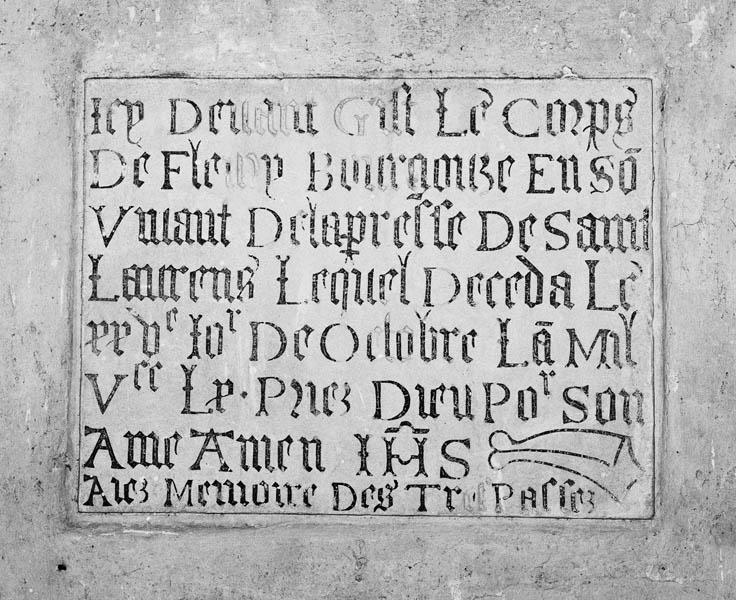 Icy Devant Gist Le Corps
De Fleury Bourgoize En Sō
Vivant Delapresse De Saint
Laurens Lequel Deceda Le
xx vᵉ Ioʳ De Octobre Lā Mil
Vᶜᶜ Lx. Priez Dieu Poʳ Son
Ame Amen IHS
Aiez Memoire Des Trespassez